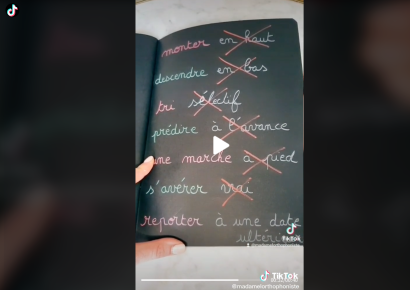 monter en haut
descendre en bas
tri sélectif
prédire à l'avance
une marche à pied
s'avérer vrai
reporter à une date
TikTok
TikTok
@madamelorthophoniste